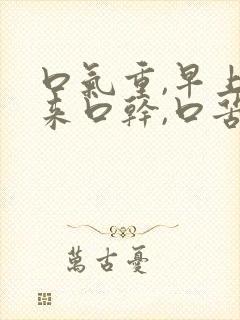 口氣重,早上
來口幹,口苦
萬古憂